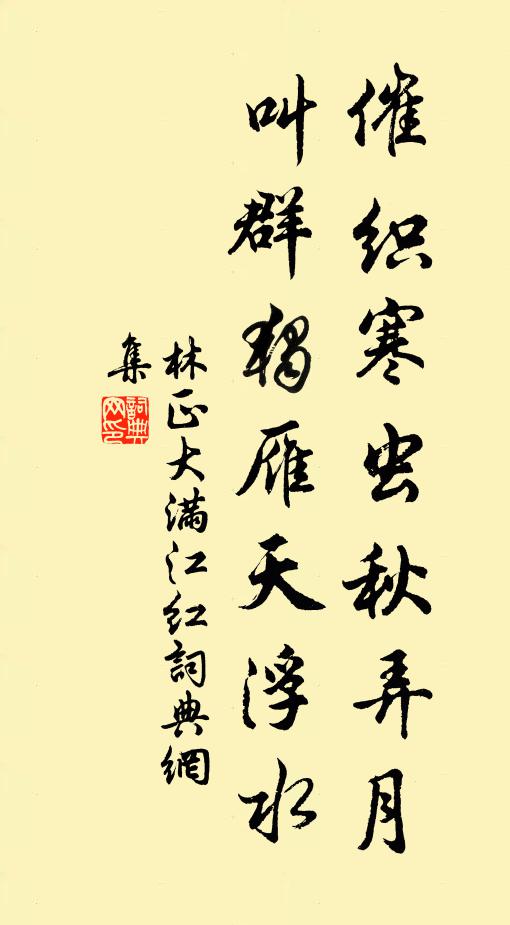 催织寒虫秋弄月
叫群独雁天浮水
林正大满江红詞典網
集
詞典網印